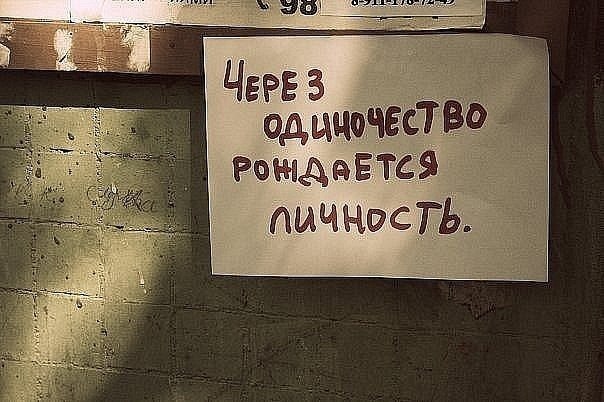 98
ЧЕРЕЗ
ОДИНОЧЕСТВО
РОЖДАЕТСЯ
ЛИЧНОСТЬ.